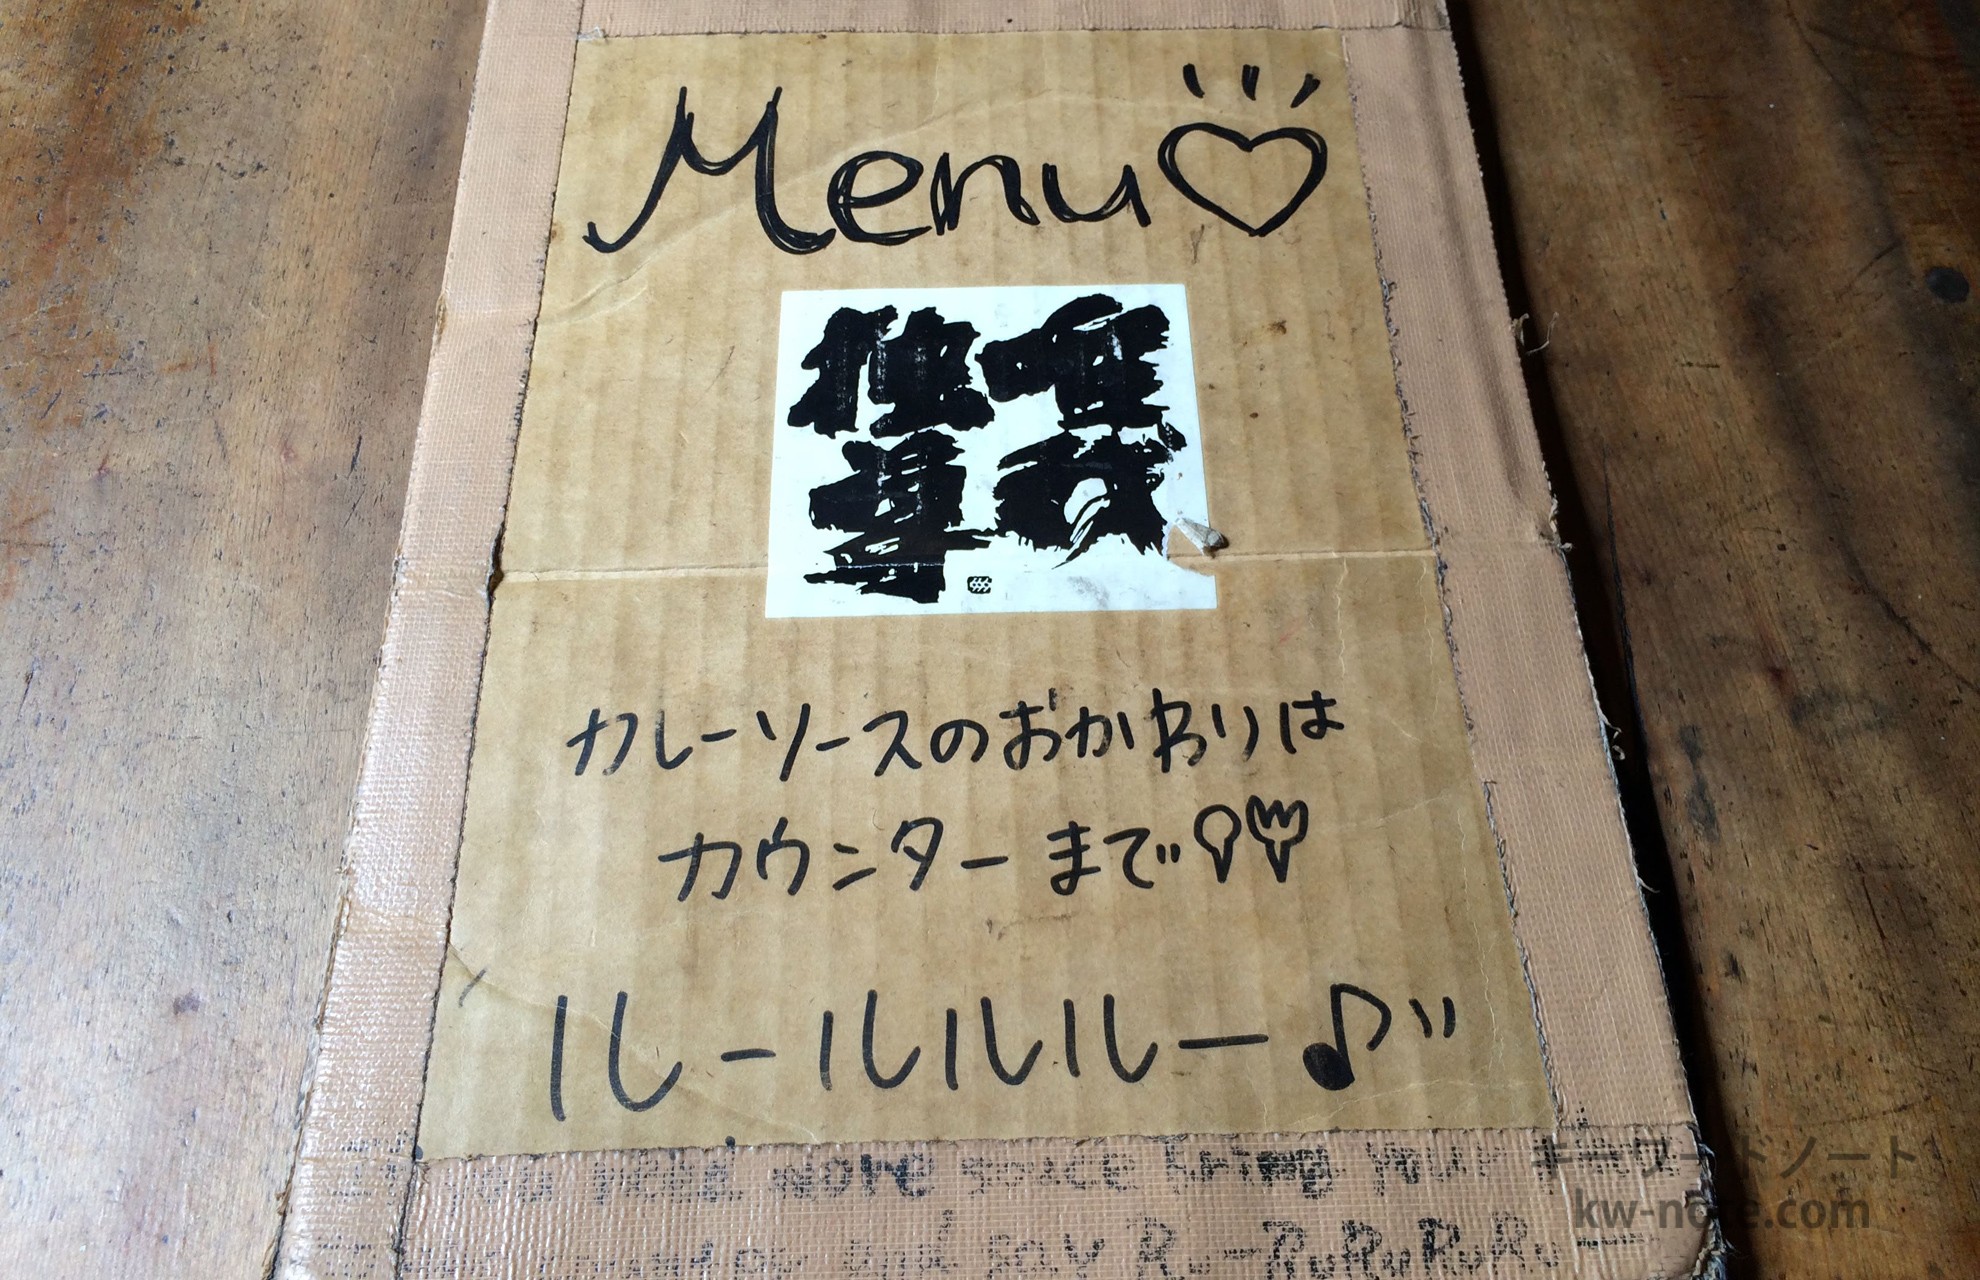 Menu♡
唯我
独尊
カレーソースのおかわりは
カウンターまで
ルールルルー♪
you need more sauce bring your
and say Ru-RuRuRuRu
キーワードノート
kw-note.com